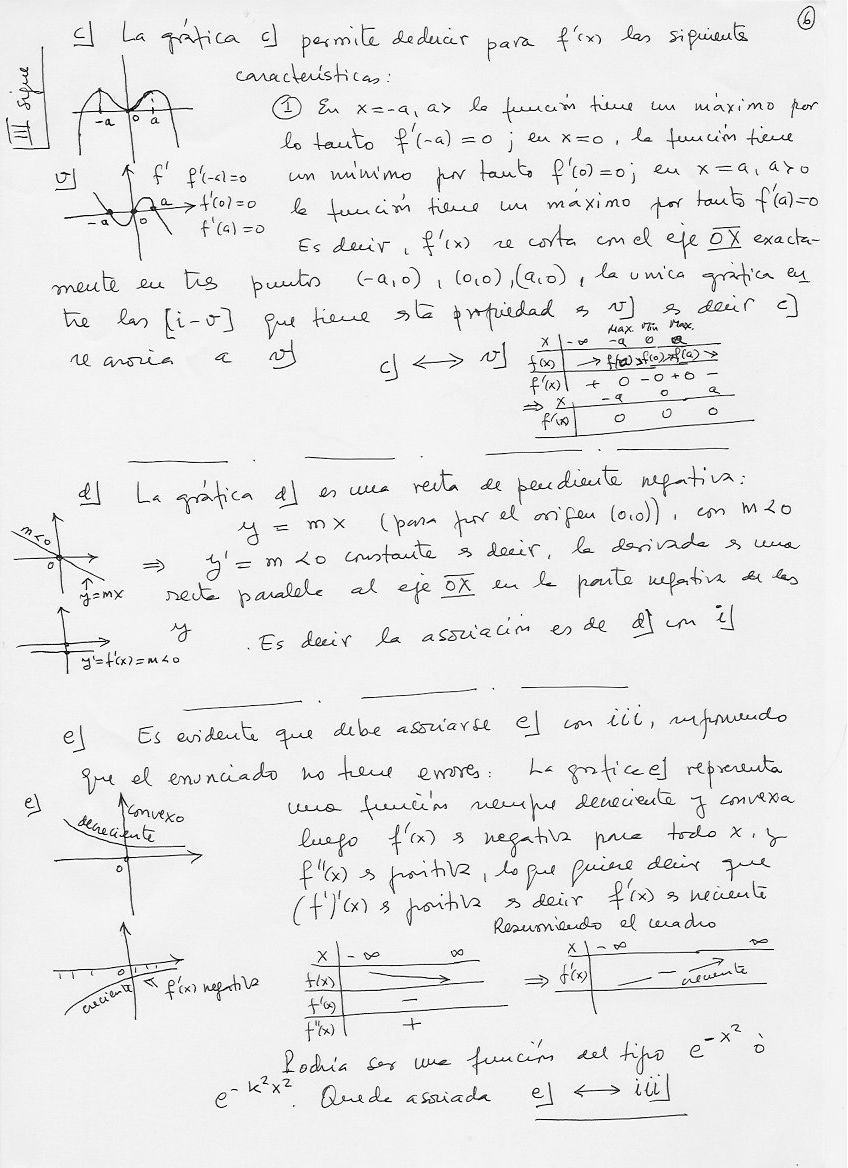 6
III sigue
c] La gráfica c] permite deducir para f'(x) las siguiente
características:
-a 0 a
① En x=-a, a> la función tiene un máximo por
lo tanto f'(-a) = 0 ; en x=0, la función tiene
un mínimo por tanto f'(0)=0; en x=a, a>0
la función tiene un máximo por tanto f'(a)=0
v] f' f'(-a)=0
f'(0)=0
f'(a)=0
-a 0 a
Es decir, f'(x) se corta con el eje OX exacta-
mente en tres puntos (-a,0), (0,0), (a,0), la unica gráfica en
tre las [i-v] que tiene esta propiedad es v] es decir c]
se asocia a v] c] ⟷ v]
Max. Min Max.
x -∞ -a 0 a
f(x) → f(a) f(0) f(a) →
f'(x) + 0 - 0 + 0 -
⇒ x -a 0 a
f'(x) 0 0 0
d] La gráfica d] es una recta de pendiente negativa:
y = mx (pasa por el origen (0,0)), con m<0
m<0
0
y=mx
⇒ y' = m <0 constante es decir, la derivada es una
recta paralela al eje OX en la parte negativa de las
y . Es decir la asociación es de d] con i]
y'=f'(x)=m<0
e] Es evidente que debe asociarse e] con iii, suponiendo
que el enunciado no tiene errores. La grafica e] representa
una función siempre decreciente y convexa
luego f'(x) es negativa para todo x, y
f''(x) es positiva, lo que quiere decir que
(f')'(x) es positiva es decir f'(x) es creciente
e] convexo
decreciente
0
Resumiendo el cuadro
x -∞ ∞
f(x)
f'(x) -
f''(x) +
⇒ x -∞ ∞
f'(x) - creciente
0
creciente f'(x) negativa
Podría ser una función del tipo e^{-x²} ó
e^{-k²x²}. Queda asociada e] ⟷ iii]